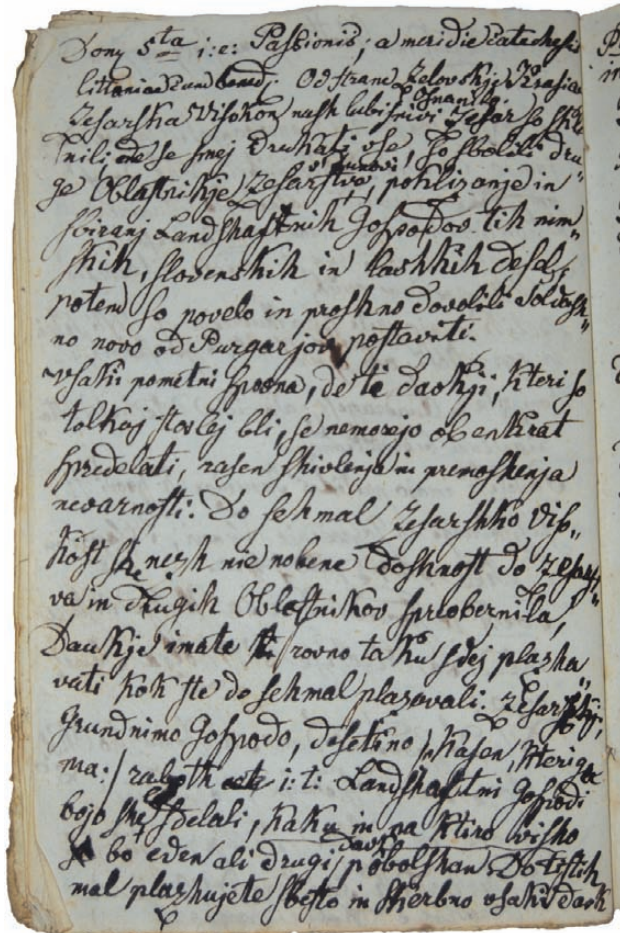 Dom 5ta i: e: Passionis; a meridie catechesis
littaniae cum bened: Od strani Zelovskje Krasia
Znanile.
Zesarska Visokon nash lubesnivi Zesar so skle
nili, de se smej drukati vse, so sbolili dru"
v' Dunovi,
ge Oblastnikje Zesarstva, pohlizanje in
sbiranj Landshaftnih Gospodov tih nim"
shkih, slovenskih in lashkih desel,
potem so povelo in proshno dovolili Soldash"
no novo od Purgarjov postaviti.
vsaki pometni spozna, de te davkji, kteri so
tolkaj stolej bli, se nemorejo ob enkrat
spredelati, rasen shivlenja in premoshenja
nevarnosti. Do sehmal Zesarshko Viso"
kost she nezh nie nobene doshnost do zesarst"
va in drugih Oblastnikov spreobernila,
Davkje imate rovno taku sdej plazhu"
vati kok ste do sehmal plazovali. Zesarskji,
Grundnimo Gospodo, desetino, kasen, kteriga
ma:/ i: t: Landshaftni Gospodi
bojo she sdelali, kaku in na ktiro visho
davk
bo eden ali drugi pobolshan. Do tistih
mal plazhujete svesto in skerbno vsaki davk